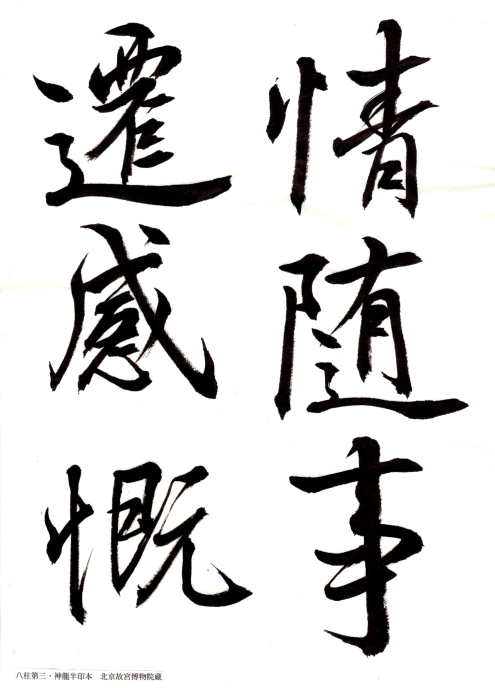 情随事
遷感慨
八柱第三・神龍半印本　北京故宮博物院蔵